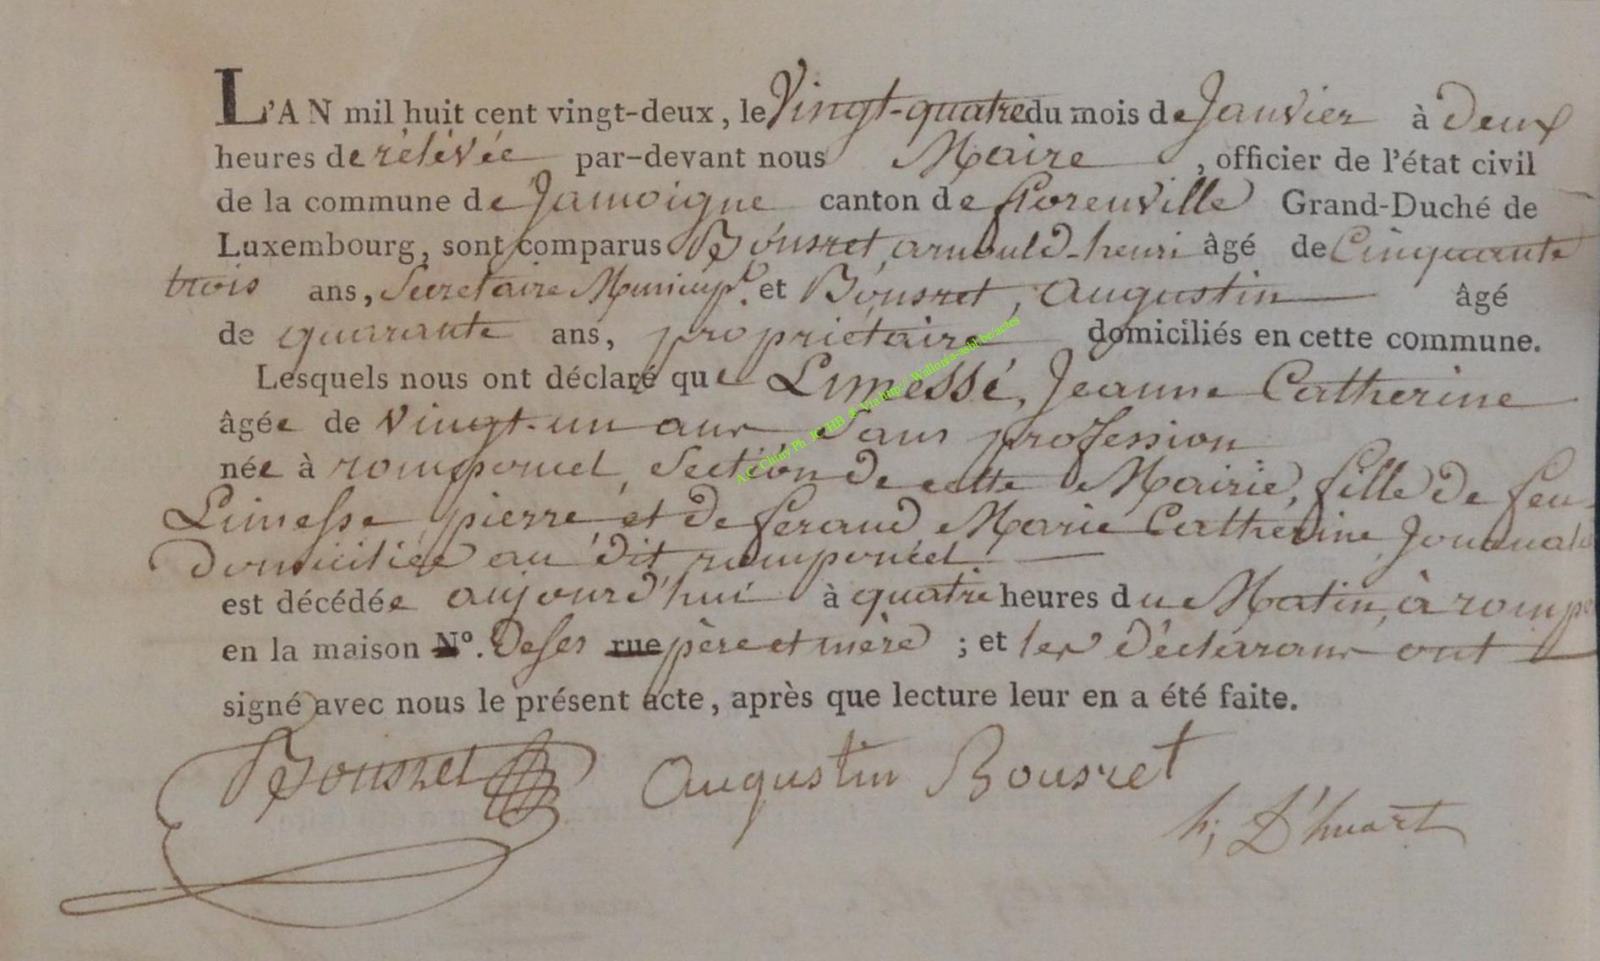 L'AN mil huit cent vingt-deux, le Vingt-quatre du mois de Janvier à deux
heures de rélévée par-devant nous Maire, officier de l'état civil
de la commune de Jamoigne canton de florenville Grand-Duché de
Luxembourg, sont comparus Bousret, arnould-henri âgé de Cinquante
trois ans, Secretaire Municipl. et Bousret, Augustin âgé
de quarante ans, propriétaire domiciliés en cette commune.
Lesquels nous ont déclaré que Limessé, Jeanne Catherine
âgée de vingt-un ans Sans profession
née à romponcel, Section de cette Mairie, fille de feu
Limesse pierre et de feraud Marie Catherine
Domiciliée au dit romponcel
est décédée aujourd'hui à quatre heures du Matin, à romp
en la maison N°. de ses rue père et mère ; et les déclarans ont
signé avec nous le présent acte, après que lecture leur en a été faite.
Bousret Augustin Bousret
h; D'huart